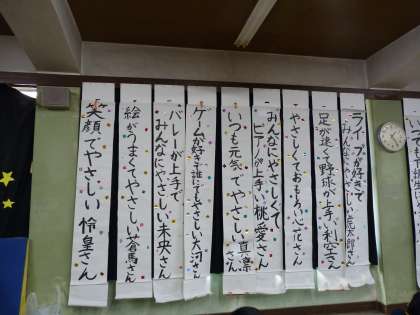 ライブが好きで
みんなにやさしい
足が速くて野球が上手い利空さん
やさしくておもろい心花さん
みんなにやさしくて
ピアノが上手い桃愛さん
いつも元気でやさしい
さん
ゲームが好きで誰にでもやさしい大河さん
バレーが上手で
みんなにやさしい未央さん
絵がうまくてやさしい蒼馬さん
笑顔でやさしい怜皇さん